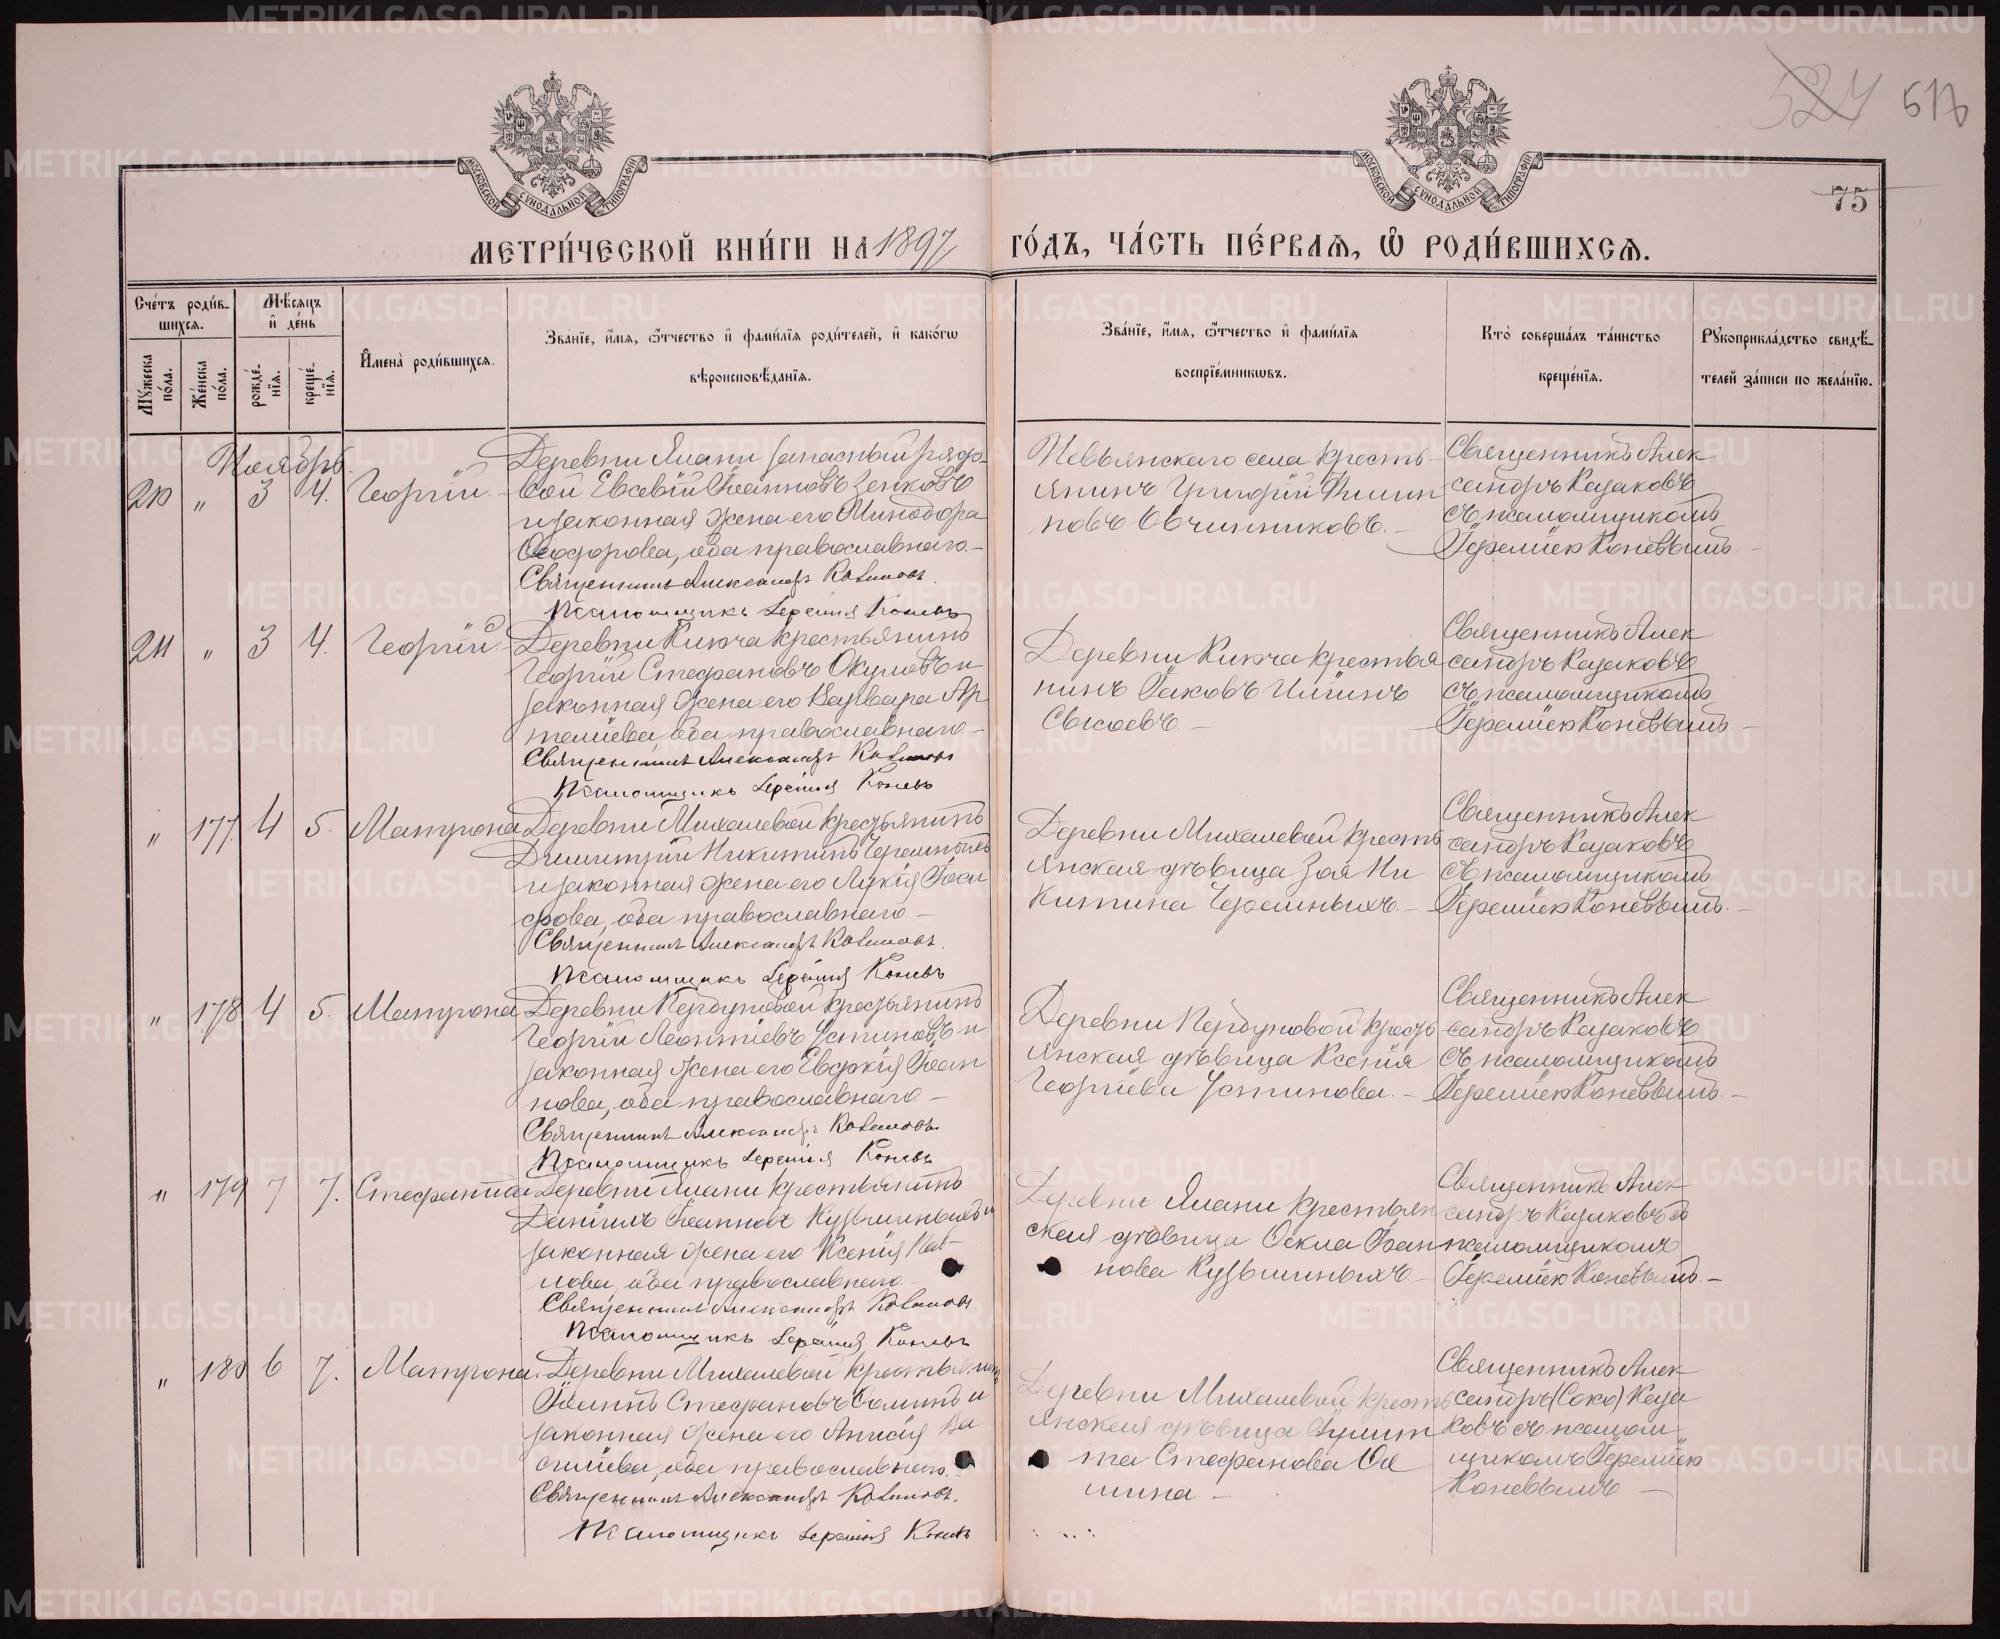 524 617
75
МОСКОВСКОЙ СѴНОДАЛЬНОЙ ТИПОГРАФІИ
МОСКОВСКОЙ СѴНОДАЛЬНОЙ ТИПОГРАФІИ
МЕТРИ́ЧЕСКОЙ КНИ́ГИ НА 1897 ГО́ДЪ, ЧА́СТЬ ПЕ́РВАѦ, Ѽ РОДИ́ВШИХСѦ.
Сче́тъ роди́в-
шихсѧ.
Мꙋ́жеска по́ла.
Же́нска по́ла.
Мѣ́сѧцъ
и҆ де́нь
рожде́нїѧ.
креще́нїѧ.
И҆мена̀ роди́вшихсѧ.
Зва́нїе, и҆́мѧ, ѻ҆́тчество и҆ фами́лїѧ роди́телей, и҆ како́гѡ
вѣроисповѣ́данїѧ.
Зва́нїе, и҆́мѧ, ѻ҆́тчество и҆ фами́лїѧ
воспрїе́мникѡвъ.
Кто̀ соверша́лъ та́инство
креще́нїѧ.
Рꙋкоприкла́дство свидѣ́-
телей за́писи по жела́нїю.
Ноябрь.
210 „ 3 4. Георгій.
Деревни Ялани запасный рядо-
вой Евсевій Іоанновъ Зенковъ
и законная жена его Минодора
Ѳеодорова, оба православнаго. –
Священникъ Александръ Казаковъ.
Псаломщикъ Іеремія Коневъ
Невьянскаго села кресть-
янинъ Григорій Филип
повъ Овчинниковъ. –
Священникъ Алек
сандръ Казаковъ
съ псаломщикомъ
Іереміею Коневымъ. –
211 „ 3 4. Георгій.
Деревни Кикча крестьянинъ
Георгій Стефановъ Окуловъ и
законная жена его Варвара Ар
темиева, оба православнаго. –
Священникъ Александръ Казаковъ
Псаломщикъ Іеремія Коневъ
Деревни Кикча крестья
нинъ Іаковъ Иліинъ
Сысоевъ –
Священникъ Алек
сандръ Казаковъ
съ псаломщикомъ
Іереміею Коневымъ. –
„ 177. 4 5. Матрона
Деревни Михалевой крестьянинъ
Димитрій Никитинъ Черемныхъ
и законная жена его Лукія Іоси
фова, оба православнаго –
Священникъ Александръ Казаковъ.
Псаломщикъ Іеремія Коневъ
Деревни Михалевой кресть
янская дѣвица Зоя Ни
китина Черемныхъ. –
Священникъ Алек
сандръ Казаковъ
съ псаломщикомъ
Іереміею Коневымъ. –
„ 178 4 5. Матрона
Деревни Пердуновой крестьянинъ
Георгій Леонтіевъ Устиновъ и
законная жена его Евдокія Іоан
нова, оба православнаго –
Священникъ Александръ Казаковъ.
Псаломщикъ Іеремія Коневъ
Деревни Пердуновой кресть
янская дѣвица Ксенія
Георгіева Устинова. –
Священникъ Алек
сандръ Казаковъ
съ псаломщикомъ
Іереміею Коневымъ. –
„ 179 7 7. Стефанида
Деревни Ялани крестьянинъ
Даніилъ Іоанновъ Кузьминыхъ и
законная жена его Ксенія Пав-
лова, оба православнаго –
Священникъ Александръ Казаковъ
Псаломщикъ Іеремія Коневъ
Деревни Ялани крестьян
ская дѣвица Ѳекла Іоан
нова Кузьминыхъ –
Священникъ Алек
сандръ Казаковъ съ
псаломщикомъ
Іереміею Коневымъ. –
„ 180 6 7. Матрона.
Деревни Михалевой крестьянинъ
Іоаннъ Стефановъ и
законная жена его Анисія Ва
силіева, оба православнаго. –
Священникъ Александръ Казаковъ.
Псаломщикъ Іеремія Коневъ
Деревни Михалевой кресть
янская дѣвица Іулит
та Стефанова
шина. –
Священникъ Алек
сандръ (Соко) Каза
ковъ съ псалом-
щикомъ Іереміею
Коневымъ –
METRIKI.GASO-URAL.RU